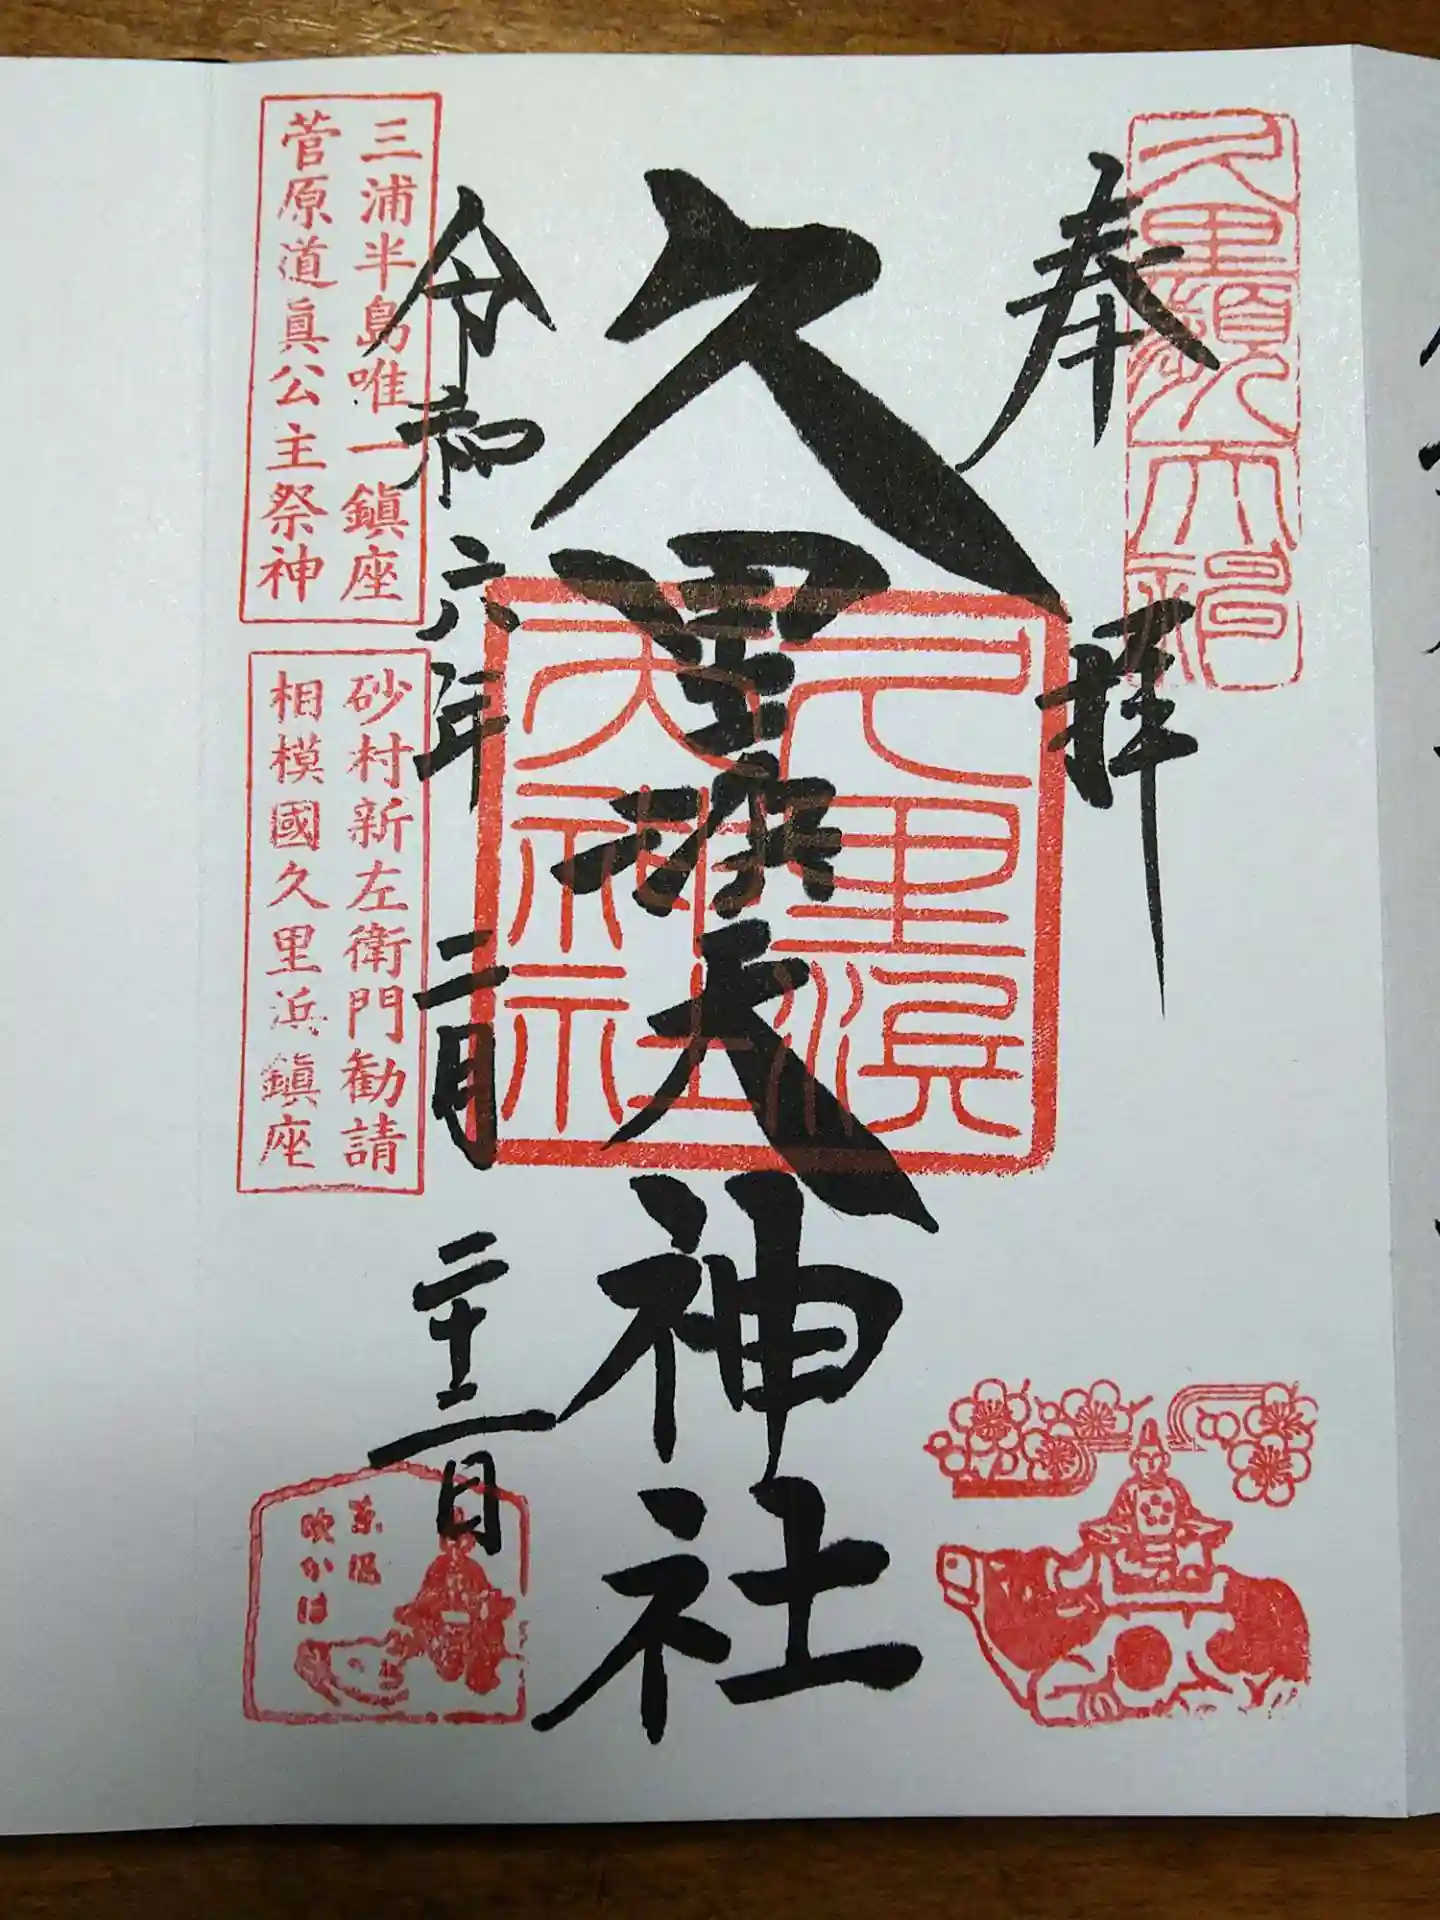 奉拝
久里濱天神社
三浦半島唯一鎮座
菅原道真公主祭神
砂村新左衛門勧請
相模國久里浜鎮座
令和六年二月二十三日
久里濱天神社
東風
吹かは